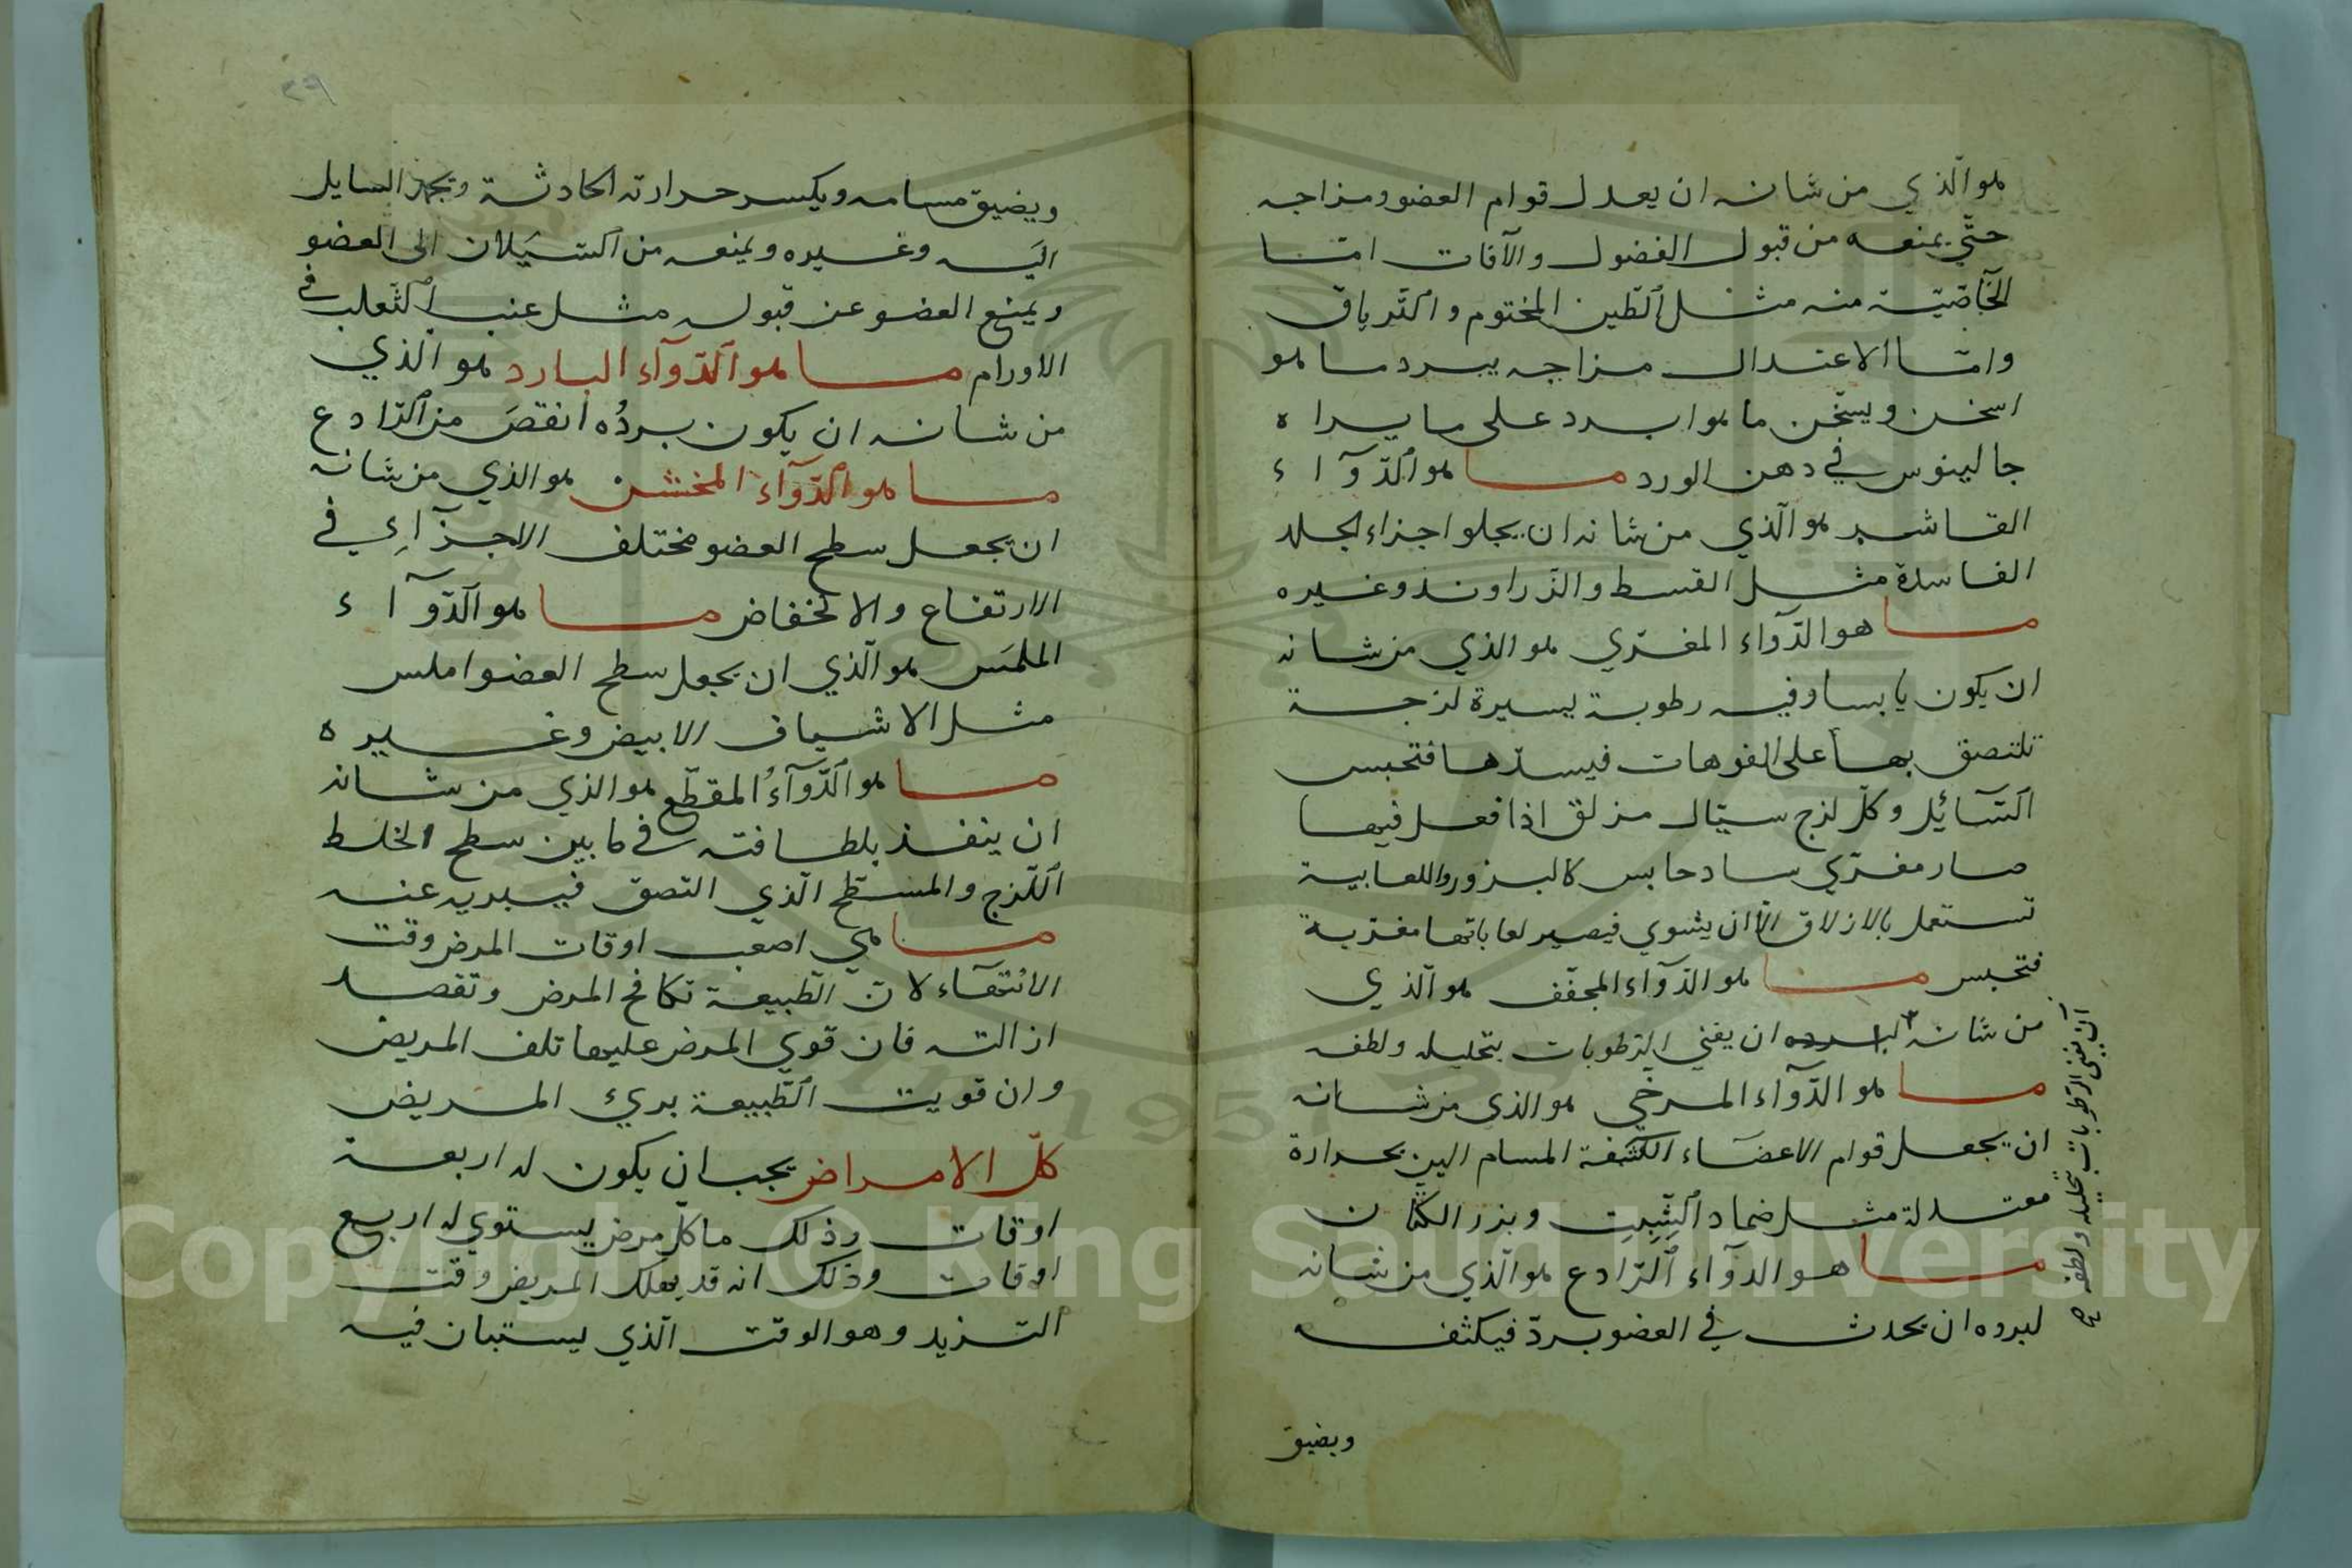 هو الّذي من شانه ان يعدل قوام العضو ومزاجه
حتّي يمنعه من قبول الفضول والآفات امّا
لخاصّيّة منه مثل الطّين المختوم والتّرياق
وامّا الاعتدال مزاجه يبرد ما هو
اسخن ويسخّن ما هو ابرد على ما يراه
جالينوس في دهن الورد ما هو الدّوآء
القاشر هو الّذي من شانه ان يجلو اجزاء الجلد
الفاسدة مثل القسط والزّراوند وغيره
ما هو الدّوآء المغرّي هو الذي من شانه
ان يكون يابسا وفيه رطوبة يسيرة لزجة
تلتصق بها على الفوهات فيسدّها فتحبس
السّآئيل وكلّ لزج سيّال مزلق اذا فعل فيها
صار مغرّي ساد حابس كالبزور واللعابية
تستعمل بالازلاق الّا ان يشوي فيصير لعاباتها مغرّية
فتحبس ما هو الدّوآء المجفّف هو الّذي
من شانه لبرده ان يفني الرّطوبات بتحليله ولطفه
ما هو الدّوآء المرخي هو الذي من شانه
ان يجعل قوام الاعضآء الكثيفة المسام الين بحرارة
معتدلة مثل ضماد الشّبت وبزر الكتّان
ما هو الدوآء الرّادع هو الّذي من شانه
لبرده ان يحدث في العضو بردّ فيكثفه
ويضيق
ان يفني الرّطوبات بتحليله ولطفه صح
٣٩
ويضيق مسامه ويكسر حرارته الحادثة ويجمد السايل
اليه وغيره ويمنعه من السّيَلان الى العضو
ويمنع العضو عن قبوله مثل عنب الثّعلب في
الاورام ما هو الدّوآء البارد هو الّذي
من شانه ان يكون بردُه انقصَ من الرّادع
ما هو الدّوآء المخشن هو الذي من شانه
ان يجعل سطح العضو مختلف الاجزآءِ في
الارتفاع والانخفاض ما هو الدّوآء
الملمّس هو الّذي ان يجعل سطح العضو املس
مثل الاشياف الابيض وغيره
ما هو الدّوآءُ المقطّع هو الذي من شانه
ان ينفذ بلطافته في ما بين سطح الخلط
اللّزج والمسطّح الّذي التصق فيبريه عنه
ما هي اصعب اوقات المرض وقت
الانتهآء لانّ الطّبيعة تكافح المرض وتقصد
ازالته فان قوي المرض عليها تلف المريض
وان قويت الطّبيعة بريء المريض
كلّ الامراض يجب ان يكون له اربعة
اوقات وذلك ما كلّ مرض يستوي له اربع
اوقات وذلك انه قد يهلك المريض وقت
التزيد وهو الوقت الّذي يستبان فيه
Copyright © King Saud University
1957